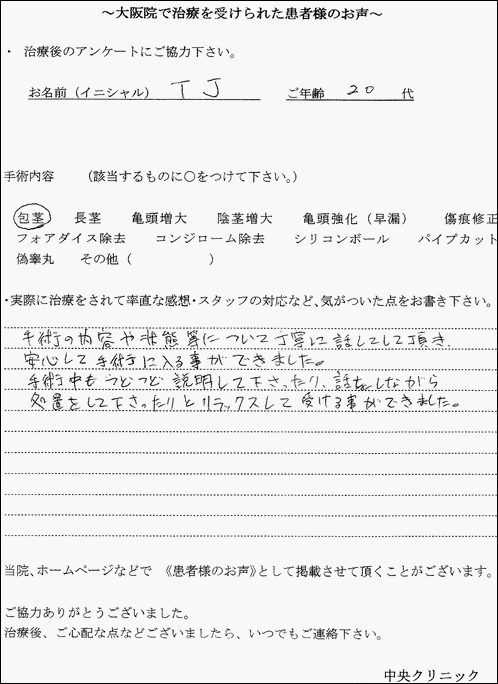 ～大阪院で治療を受けられた患者様のお声～
・ 治療後のアンケートにご協力下さい。
お名前（イニシャル） T J ご年齢 20 代
手術内容 （該当するものに○をつけて下さい。）
包茎 長茎 亀頭増大 陰茎増大 亀頭強化（早漏） 傷痕修正
フォアダイス除去 コンジローム除去 シリコンボール パイプカット
偽睾丸 その他（ ）
・実際に治療をされて率直な感想・スタッフの対応など、気がついた点をお書き下さい。
手術の内容や状態等について丁寧に話してして頂き、
安心して手術に入る事ができました。
手術中もつどつど説明して下さったり、話をしながら
処置をして下さったりとリラックスして受ける事ができました。
当院、ホームページなどで 《患者様のお声》として掲載させて頂くことがございます。
ご協力ありがとうございました。
治療後、ご心配な点などございましたら、いつでもご連絡下さい。
中央クリニック